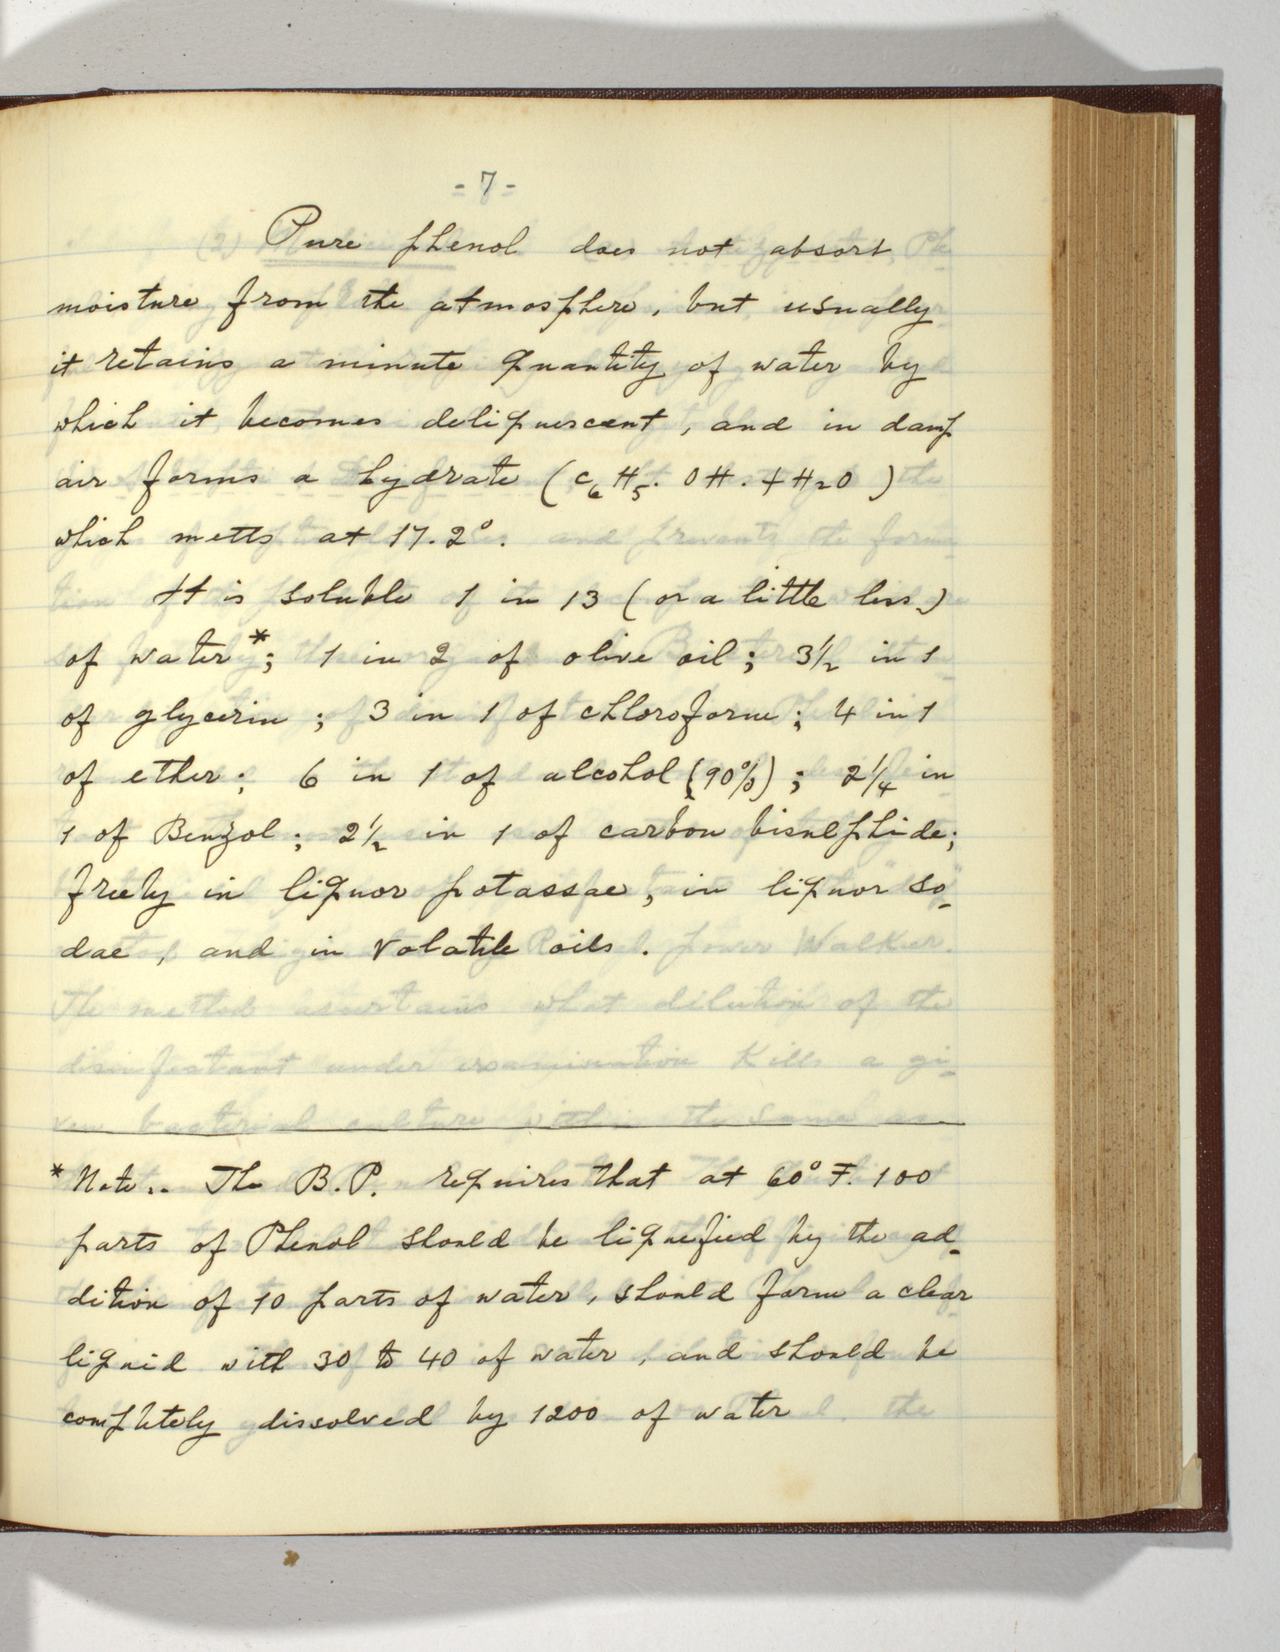 - 7 -
Pure phenol does not absorb
moisture from the atmosphere, but usually
it retains a minute quantity of water by
which it becomes deliquescent, and in damp
air forms a hydrate (C6H5. OH. + H2O)
which melts at 17.2°.
It is soluble 1 in 13 (or a little less)
of water*; 1 in 2 of olive oil; 3½ in 1
of glycerin; 3 in 1 of chloroform; 4 in 1
of ether; 6 in 1 of alcohol (90%); 2¼ in
1 of Benzol; 2½ in 1 of carbon bisulphide;
freely in liquor potassae, in liquor so-
dae, and in volatile oils.
* Note.. The B.P. requires that at 60° F. 100
parts of Phenol should be liquefied by the ad-
dition of 10 parts of water, should form a clear
liquid with 30 to 40 of water, and should be
completely dissolved by 1200 of water